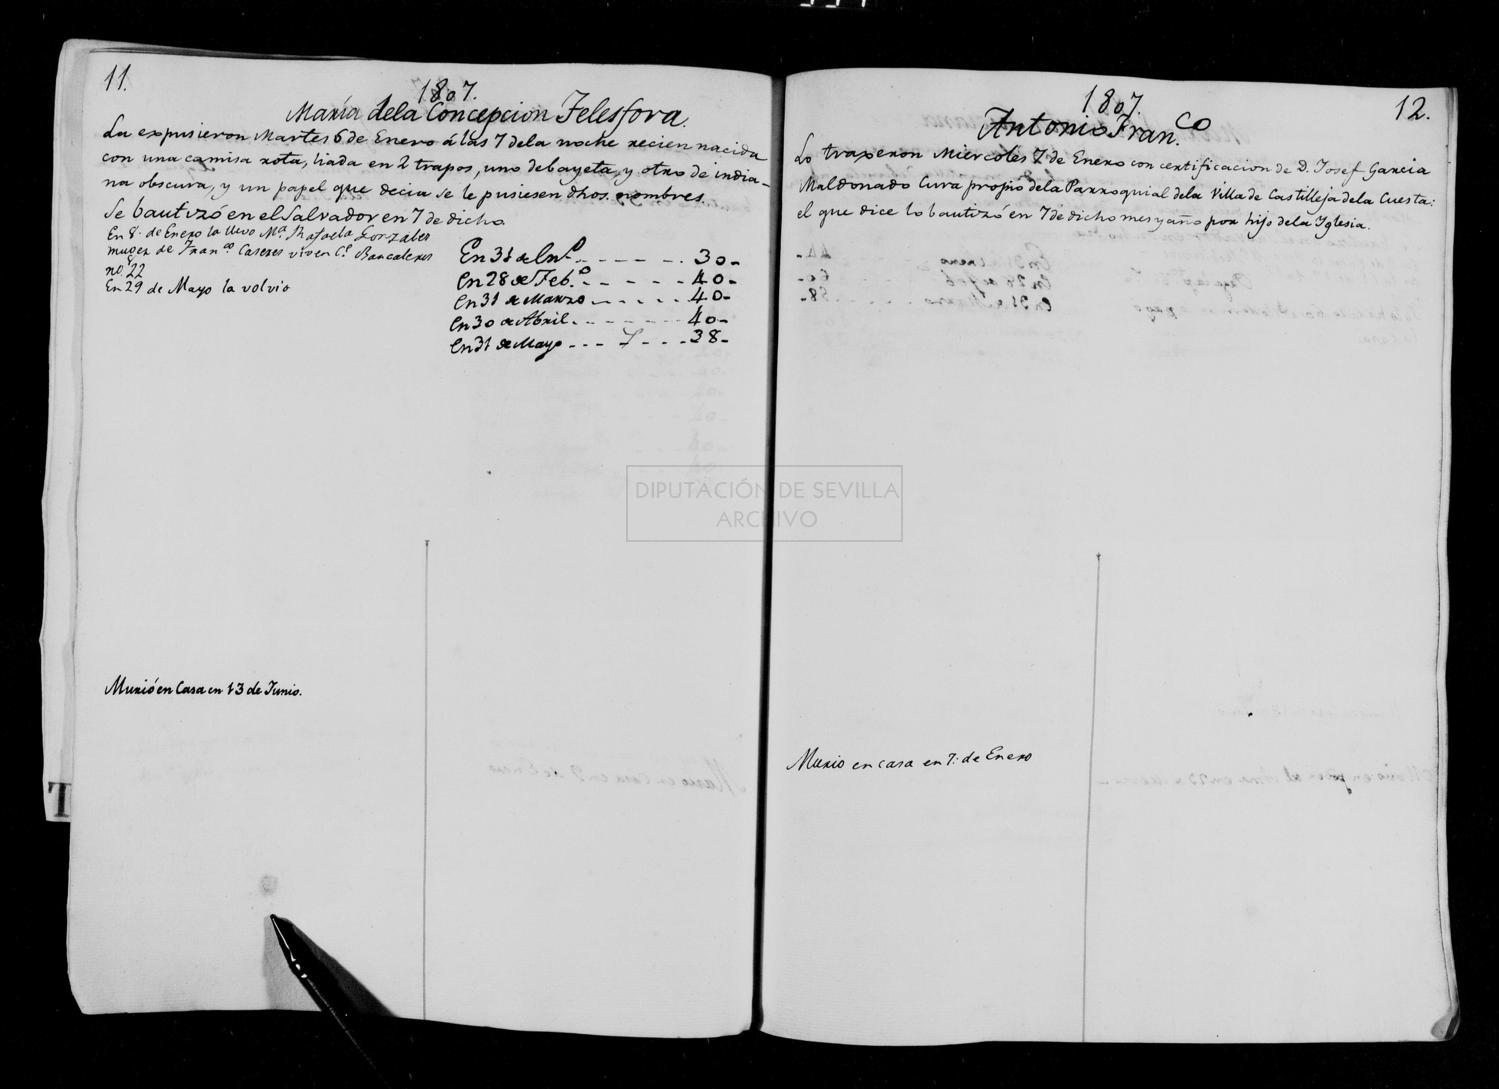 11.
1807.
María dela Concepcion Telesfora.
La expusieron Martes 6 de Enero á las 7 dela noche recien nacida
con una camisa rota, liada en 2 trapos, uno de bayeta, y otro de india-
na obscura, y un papel que decia se le pusiesen dhos. nombres.
Se bautizó en el Salvador en 7 de dicho.
En 8. de Enero la llevo Mª. Rafaela Gonzales
muger de Franco. Caseres vive en Ce.
no. 22
En 29 de Mayo la volvio
En 31 de Eno. - - - - - 30-
En 28 de Febo. - - - - - 40-
En 31 de Marzo - - - - - 40-
En 30 de Abril. - - - - - 40-
En 31 de Mayo - - - - - 38-
Murió en Casa en 13 de Junio.
1807.
12.
Antonio Franco.
Lo traxeron Miercoles 7 de Enero con certificacion de D. Josef Garcia
Maldonado Cura propio dela Parroquial dela Villa de Castilleja dela Cuesta:
el que dice lo bautizó en 7 de dicho mes y año por hijo dela Yglesia.
Murio en casa en 7. de Enero
DIPUTACIÓN DE SEVILLA
ARCHIVO
T